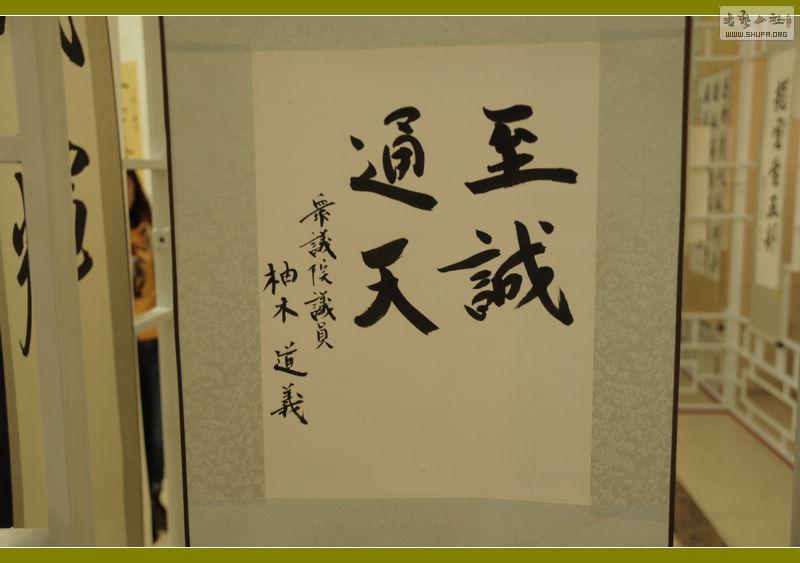 至誠
通天
衆議院議員
柚木道義
書藝公社
WWW.SHUFA.ORG